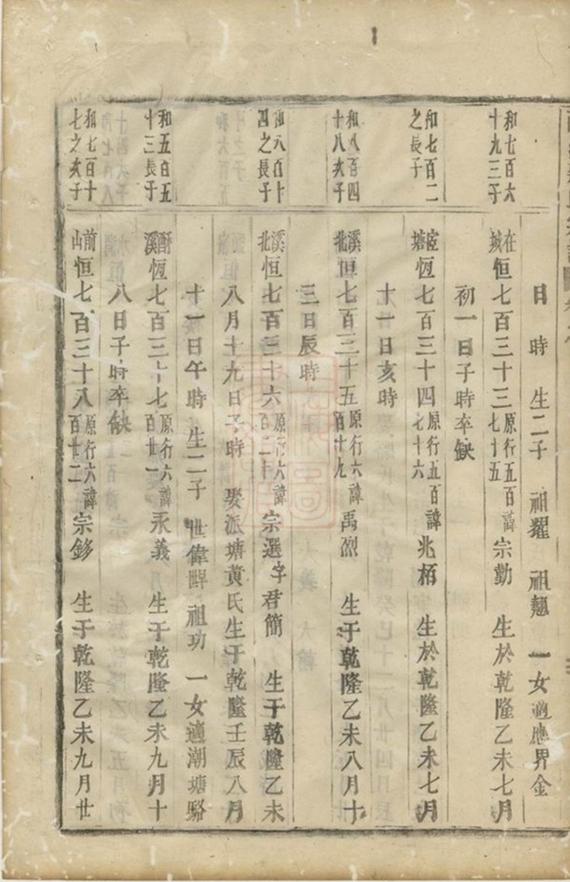 日　時　生二子　祖耀　祖翹　一女適應界金
和七百六十九三子
在城恒七百三十三原行五百七十五諱宗勤　生於乾隆乙未七月
初一日子時卒缺
和七百二之長子
塘恆七百三十四原行五百七十六諱兆栢　生於乾隆乙未七月
十一日亥時
和八百四十八次子
溪北恒七百三十五原行六百十九諱禹烈　生于乾隆乙未八月十
三日辰時
和八百十四之長子
溪北恒七百三十六原行六百二十諱宗選字君簡　生于乾隆乙未
八月十九日子時　娶派塘黃氏生于乾隆壬辰八月
十一日午時　生二子　世偉　祖功　一女適潮塘駱
和五百五十三長子
酥溪恆七百三十七原行六百廿一諱永義　生于乾隆乙未九月十
八日子時卒缺
和七百十七之次子
前山恒七百三十八原行六百廿二諱宗鉹　生于乾隆乙未九月廿